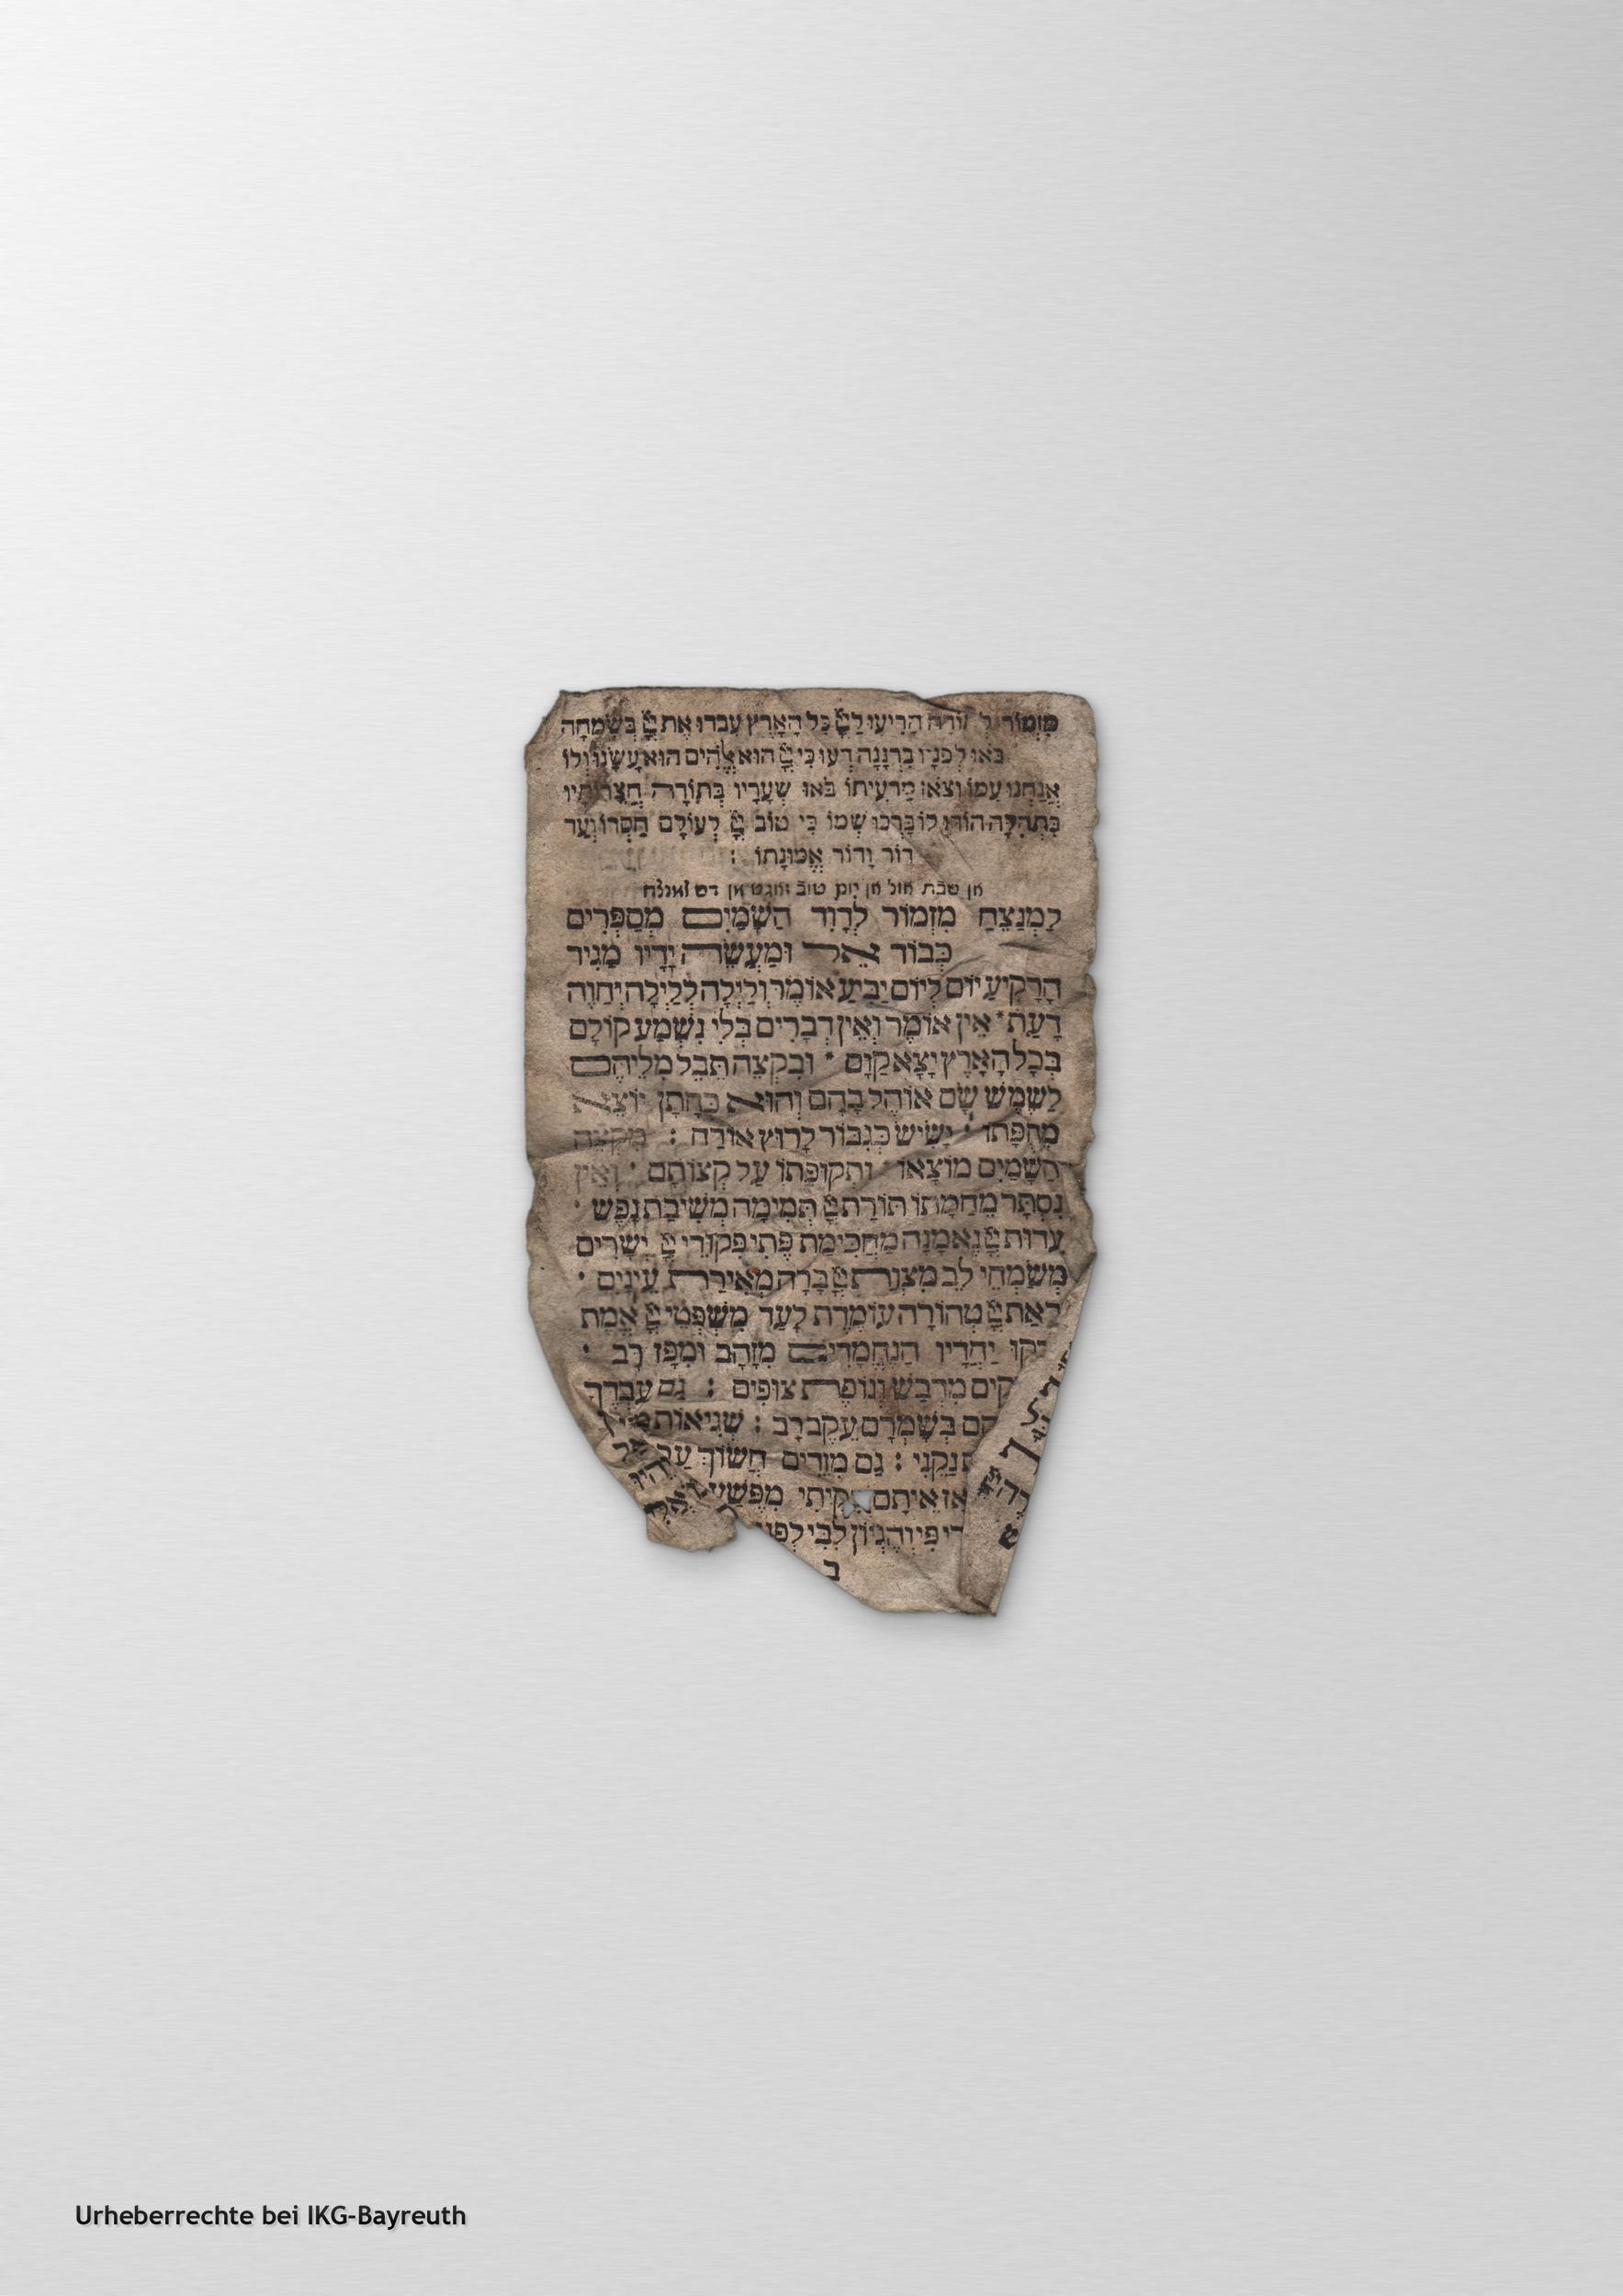 מִזְמוֹר הָרִיעוּ לַיְיָ כָּל הָאָרֶץ עִבְדוּ אֶת יְיָ בְּשִׂמְחָה
בֹּאוּ לְפָנָיו בִּרְנָנָה דְּעוּ כִּי יְיָ הוּא אֱלֹהִים הוּא עָשָׂנוּ וְלוֹ
אֲנַחְנוּ עַמּוֹ וְצֹאן מַרְעִיתוֹ בֹּאוּ שְׁעָרָיו בְּתוֹדָה חֲצֵרוֹתָיו
בִּתְהִלָּה הוֹדוּ לוֹ בָּרְכוּ שְׁמוֹ כִּי טוֹב יְיָ לְעוֹלָם חַסְדּוֹ וְעַד
דּוֹר וָדוֹר אֱמוּנָתוֹ :
אן שבת אונ אן יום טוב זאגט אן דש למנצח
לַמְנַצֵּחַ מִזְמוֹר לְדָוִד הַשָּׁמַיִם מְסַפְּרִים
כְּבוֹד אֵל וּמַעֲשֵׂה יָדָיו מַגִּיד
הָרָקִיעַ יוֹם לְיוֹם יַבִּיעַ אוֹמֶר וְלַיְלָה לְלַיְלָה יְחַוֶּה
דָּעַת * אֵין אוֹמֶר וְאֵין דְּבָרִים בְּלִי נִשְׁמָע קוֹלָם
בְּכָל הָאָרֶץ יָצָא קַוָּם * וּבִקְצֵה תֵבֵל מִלֵּיהֶם
לַשֶּׁמֶשׁ שָׂם אוֹהֶל בָּהֶם וְהוּא כְּחָתָן יוֹצֵא
מֵחֻפָּתוֹ : יָשִׂישׂ כְּגִבּוֹר לָרוּץ אוֹרַח : מִקְצֵה
הַשָּׁמַיִם מוֹצָאוֹ וּתְקוּפָתוֹ עַל קְצוֹתָם · וְאֵין
נִסְתָּר מֵחַמָּתוֹ תּוֹרַת יְיָ תְּמִימָה מְשִׁיבַת נָפֶשׁ ·
עֵדוּת יְיָ נֶאֱמָנָה מַחְכִּימַת פֶּתִי פִּקּוּדֵי יְיָ יְשָׁרִים
מְשַׂמְּחֵי לֵב מִצְוַת יְיָ בָּרָה מְאִירַת עֵינָיִם ·
יִרְאַת יְיָ טְהוֹרָה עוֹמֶדֶת לָעַד מִשְׁפְּטֵי יְיָ אֱמֶת
דקוּ יַחְדָּיו הַנֶּחֱמָדִים מִזָּהָב וּמִפַּז רָב ·
קִים מִדְּבַשׁ וְנוֹפֶת צוּפִים : גַּם עַבְדְּךָ
הֶם בְּשָׁמְרָם עֵקֶב רָב : שְׁגִיאוֹת מִי
ת נַקֵּנִי : גַּם מִזֵּדִים חֲשׂוֹךְ עַבְ
אָז אֵיתָם קֵיתִי מִפֶּשַׁע
רֵי פִי וְהֶגְיוֹן לִבִּי לְפָנֶי
ב
Urheberrechte bei IKG-Bayreuth